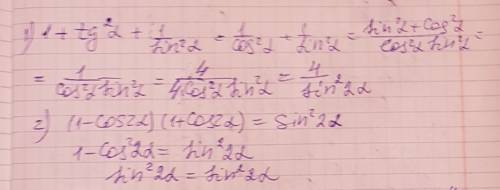 1) 1 + tg²α + 1/sin²α = 1/cos²α + 1/sin²α = (sin²α + cos²α)/(cos²α sin²α) =
= 1/(cos²α sin²α) = 4/(4cos²α sin²α) = 4/sin²2α
2) (1-cos2α)(1+cos2α) = sin²2α
1-cos²2α = sin²2α
sin²2α = sin²2α